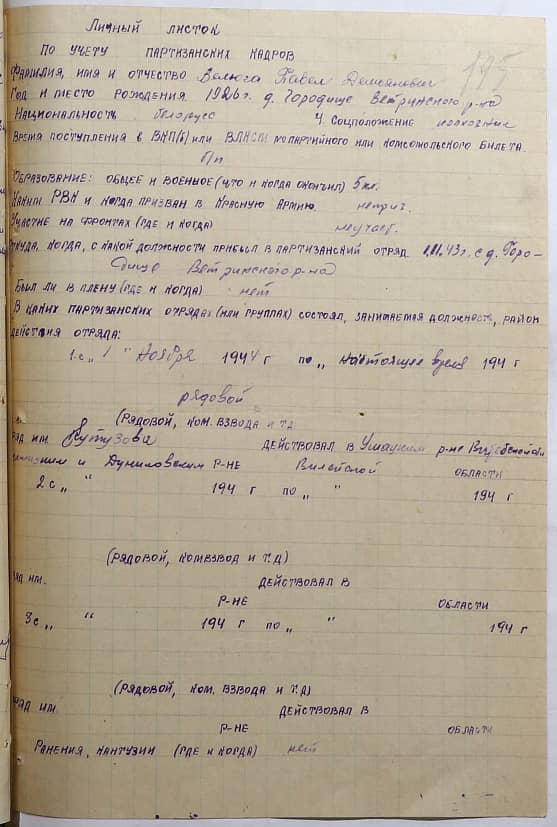 Личный листок
195
по учету партизанских кадров
Фамилия, имя и отчество Велюга Павел Демьянович
Год и место рождения 1926 г. д. Городище Ветринского р-на
Национальность белорус 4. Соцположение колхозник
Время поступления в ВКП(б) или ВЛКСМ № партийного или комсомольского билета
б/п
Образование: общее и военное (что и когда окончил) 5 кл.
Каким РВК и когда призван в Красную Армию. неприз.
Участие на фронтах (где и когда) неучаст.
Откуда, когда, с какой должности прибыл в партизанский отряд 1.11.43 г. с д. Горо-
дище Ветринского р-на
Был ли в плену (где и когда) нет
В каких партизанских отрядах (или группах) состоял, занимаемая должность, район
действия отряда:
1. с „ 1 " ноября 1944 г по „ настоящее время 194 г
рядовой
(рядовой, ком. взвода и т.д
ряд им. Кутузова действовал в Ушацком р-не Витебской об
и Дуниловском р-не Вилейской области
2 с „ " 194 г по „ " 194 г
(рядовой, комвзвод и т.д)
ряд им. действовал в
р-не области
3 с „ " 194 г по „ " 194 г
(рядовой, ком. взвода и т.д)
ряд им. действовал в
р-не области
Ранения, кантузии (где и когда) нет